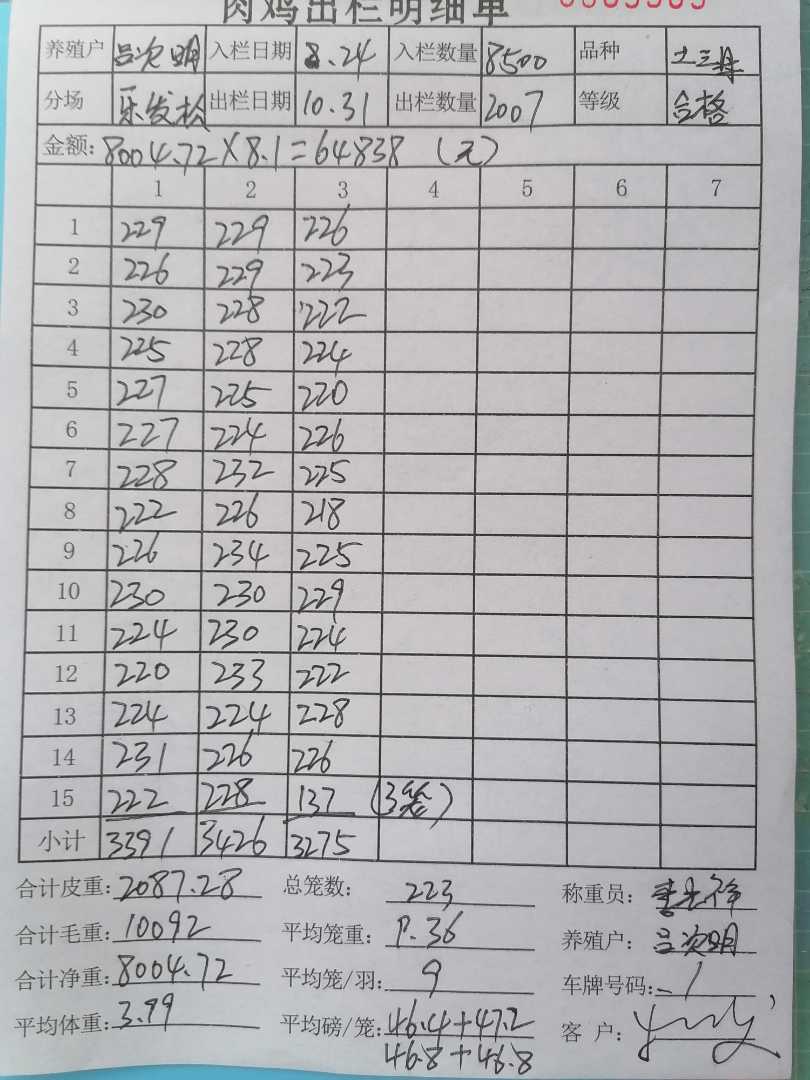 肉鸡出栏明细单
养殖户 吕次明 入栏日期 8.24 入栏数量 8500 品种 土三
分场 乐发松 出栏日期 10.31 出栏数量 2007 等级 合格
金额: 8004.72×8.1=64838 (元)
1 2 3 4 5 6 7
1 229 229 226
2 226 229 223
3 230 228 222
4 225 228 224
5 227 225 220
6 227 224 226
7 228 232 225
8 222 226 218
9 226 234 225
10 230 230 229
11 224 230 224
12 220 233 222
13 224 224 228
14 231 226 226
15 222 228 137 (3笼)
小计 3391 3426 3275
合计皮重: 2087.28 总笼数: 223 称重员:
合计毛重: 10092 平均笼重: 9.36 养殖户: 吕次明
合计净重: 8004.72 平均笼/羽: 9 车牌号码: -1
平均体重: 3.99 平均磅/笼: 46.4+47.2 客 户:
46.8+46.8